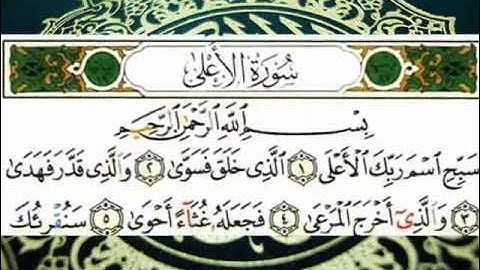 سُورَةُ الأَعْلَىٰ
بِسْمِ اللَّهِ الرَّحْمَٰنِ الرَّحِيمِ
سَبِّحِ اسْمَ رَبِّكَ الْأَعْلَى ١ الَّذِي خَلَقَ فَسَوَّىٰ ٢ وَالَّذِي قَدَّرَ فَهَدَىٰ
٣ وَالَّذِي أَخْرَجَ الْمَرْعَىٰ ٤ فَجَعَلَهُ غُثَاءً أَحْوَىٰ ٥ سَنُقْرِئُكَ